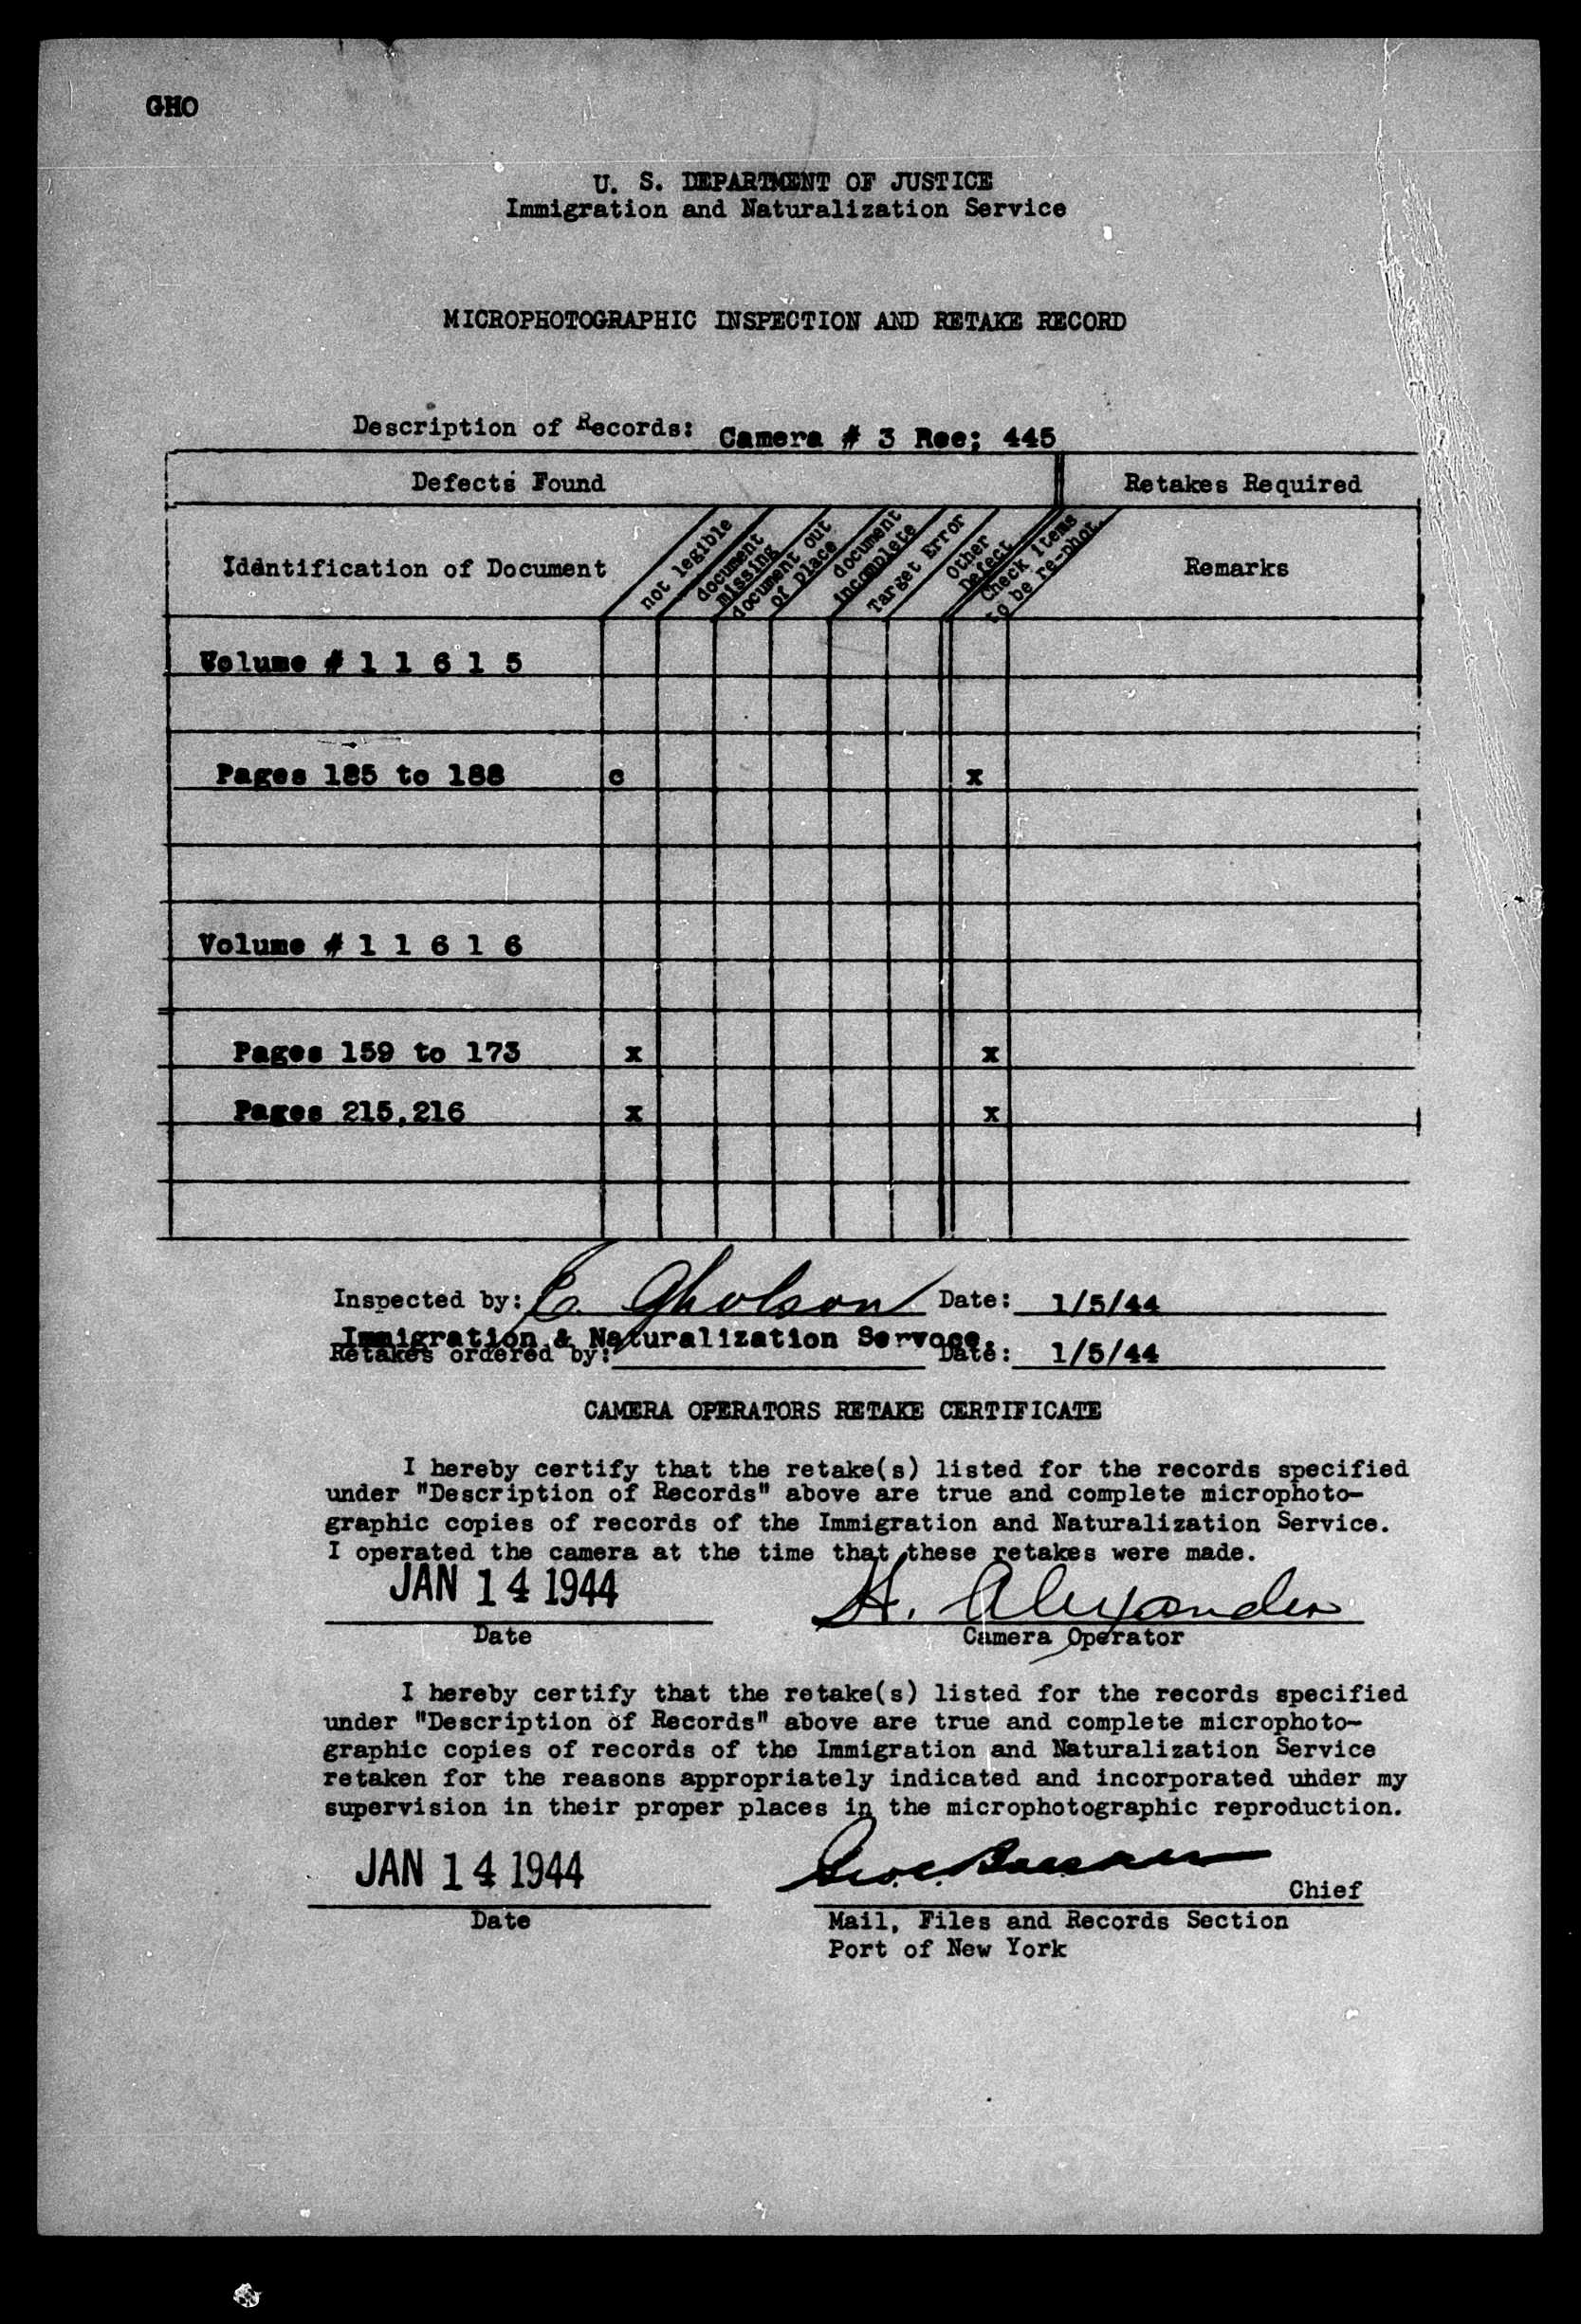 GHO
U. S. DEPARTMENT OF JUSTICE
Immigration and Naturalization Service
MICROPHOTOGRAPHIC INSPECTION AND RETAKE RECORD
Description of Records: Camera # 3 Ree; 445
Defects Found Retakes Required
Identification of Document
not legible
document missing
document out of place
document incomplete
Target Error
Other Defect
Check items to be re-phot.
Remarks
Volume # 1 1 6 1 5
Pages 185 to 188 c x
Volume # 1 1 6 1 6
Pages 159 to 173 x x
Pages 215,216 x x
Inspected by: C. Gholson Date: 1/5/44
Immigration & Naturalization Servoce.
Retakes ordered by: Date: 1/5/44
CAMERA OPERATORS RETAKE CERTIFICATE
I hereby certify that the retake(s) listed for the records specified
under "Description of Records" above are true and complete microphoto-
graphic copies of records of the Immigration and Naturalization Service.
I operated the camera at the time that these retakes were made.
JAN 14 1944 H. Alexander
Date Camera Operator
I hereby certify that the retake(s) listed for the records specified
under "Description of Records" above are true and complete microphoto-
graphic copies of records of the Immigration and Naturalization Service
retaken for the reasons appropriately indicated and incorporated under my
supervision in their proper places in the microphotographic reproduction.
JAN 14 1944
Chief
Date Mail, Files and Records Section
Port of New York